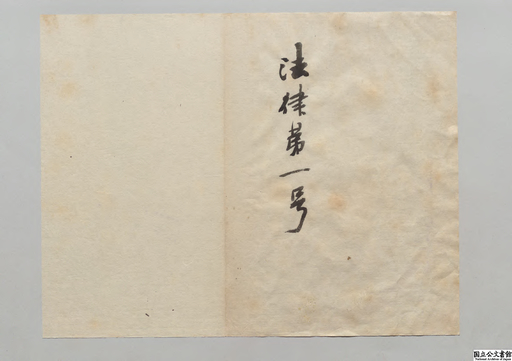 法律第一号
国立公文書館
National Archives of Japan